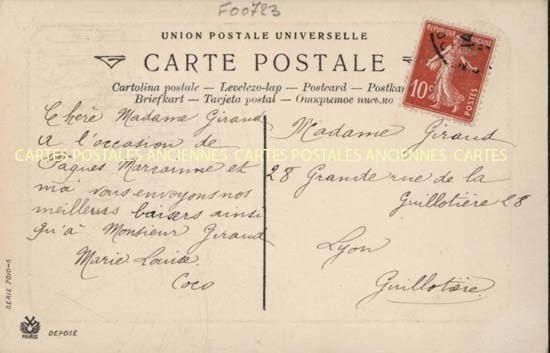 F00723
UNION POSTALE UNIVERSELLE
CARTE POSTALE
Cartolina postale — Levelezo-lap — Postcard — Postka
Briefkart — Tarjeta postal — Открытое письмо
REPUBLIQUE FRANÇAISE
10c
POSTES
Chère Madame Giraud
A l'occasion de
Paques Marianne et
moi vous envoyons nos
meilleurs baisers ainsi
qu'à Monsieur Giraud
Marie Louise
Coco
Madame Giraud
28 Grande rue de la
Guillotière 28
Lyon
Guillotière
CARTES POSTALES ANCIENNES CARTES POSTALES ANCIENNES CARTES
SÉRIE 7010-5
PARIS
DEPOSÉ